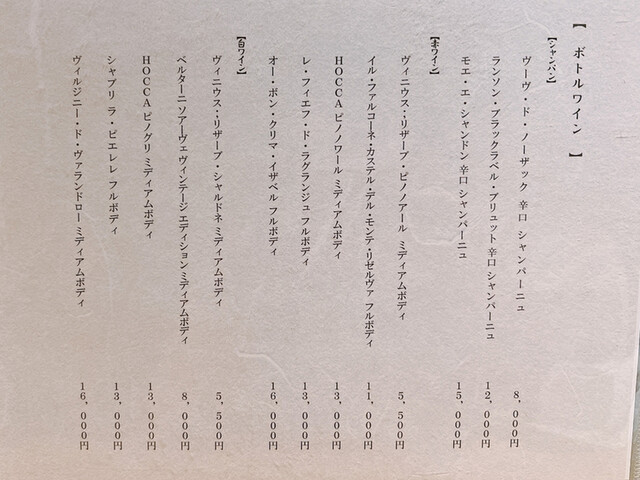 【 ボトルワイン 】
【シャンパン】
ヴーヴ・ド・ノーザック 辛口 シャンパーニュ 8,000円
ランソン・ブラックラベル・ブリュット 辛口 シャンパーニュ 12,000円
モエ・エ・シャンドン 辛口 シャンパーニュ 15,000円
【赤ワイン】
ヴィニウス:リザーブ・ピノノアール ミディアムボディ 5,500円
イル・ファルコーネ・カステル・デル・モンテ・リゼルヴァ フルボディ 11,000円
HOCCA ピノノワール ミディアムボディ 13,000円
レ・フィエフ・ド・ラグランジュ フルボディ 13,000円
オー・ボン・クリマ・イザベル フルボディ 16,000円
【白ワイン】
ヴィニウス:リザーブ・シャルドネ ミディアムボディ 5,500円
ベルターニ ソアーヴェ ヴィンテージ エディション ミディアムボディ 8,000円
HOCCA ピノグリ ミディアムボディ 13,000円
シャブリ ラ・ピエレレ フルボディ 13,000円
ヴィルジニー・ド・ヴァランドロー ミディアムボディ 16,000円